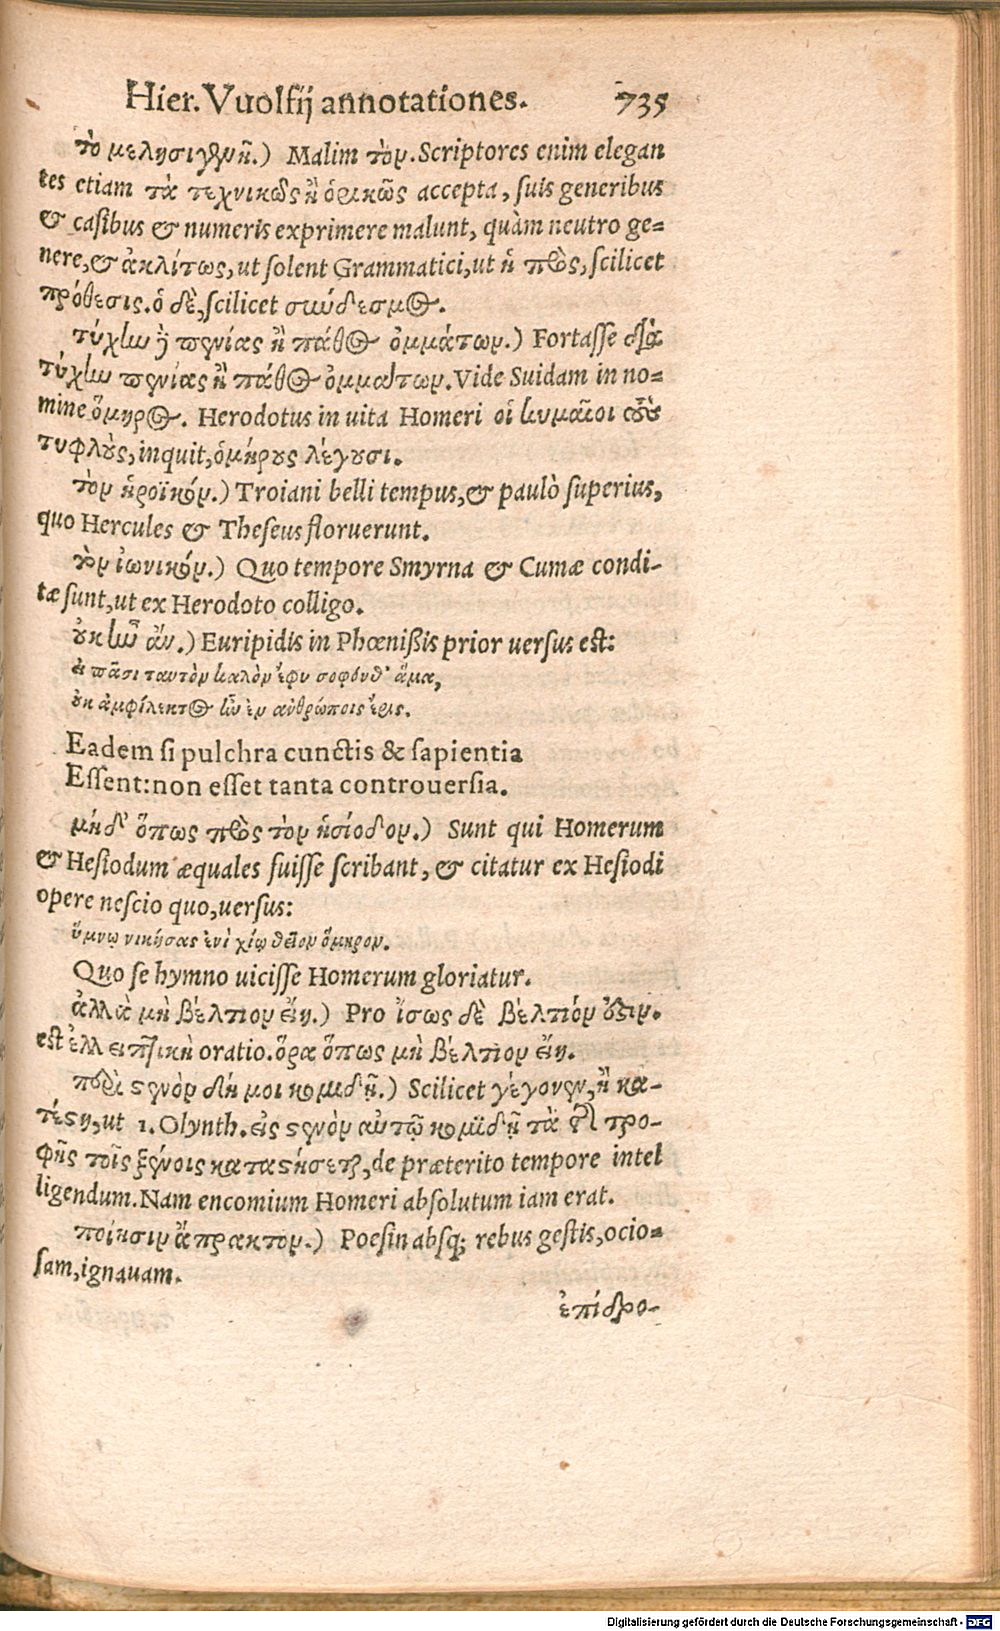 Hier. Vuolfij annotationes. 735
τὸ μελησιγενῆ.) Malim τὸν. Scriptores enim elegan
tes etiam τὰ τεχνικῶς ἢ ὁρικῶς accepta, suis generibus
& casibus & numeris exprimere malunt, quàm neutro ge=
nere, & ἀκλίτως, ut solent Grammatici, ut ἡ πρὸς, scilicet
πρόθεσις. ὁ δὲ, scilicet σύνδεσμος.
τύχην ἢ πενίας ἢ πάθος ὀμμάτων.) Fortasse διὰ
τύχην πενίας ἢ πάθος ὀμμάτων. Vide Suidam in no=
mine ὅμηρος. Herodotus in uita Homeri οἱ κυμαῖοι τοὺς
τυφλοὺς, inquit, ὁμήρους λέγουσι.
τὸν ἡροϊκόν.) Troiani belli tempus, & paulò superius,
quo Hercules & Theseus floruerunt.
τὸν ἰωνικόν.) Quo tempore Smyrna & Cumæ condi-
tæ sunt, ut ex Herodoto colligo.
οὐκ ἦν ἂν.) Euripidis in Phœnißis prior uersus est:
εἰ πᾶσι ταυτὸν καλὸν ἔφυ σοφόνθ' ἅμα,
οὐκ ἀμφίλεκτος ἦν ἐν ἀνθρώποις ἔρις.
Eadem si pulchra cunctis & sapientia
Essent: non esset tanta controuersia.
μήδ' ὅπως πρὸς τὸν ἡσίοδον.) Sunt qui Homerum
& Hesiodum æquales fuisse scribant, & citatur ex Hesiodi
opere nescio quo, uersus:
ὕμνῳ νικήσας ἐνὶ χίῳ θεῖον ὅμηρον.
Quo se hymno uicisse Homerum gloriatur.
ἀλλὰ μὴ βέλτιον εἴη.) Pro ἴσως δὲ βέλτιόν ἐστιν.
est ἐλλειπτικὴ oratio. ὅρα ὅπως μὴ βέλτιον εἴη.
περὶ στενὸν δή μοι κομιδῇ.) Scilicet γέγονεν, ἢ κα-
τέστη, ut 1. Olynth. εἰς στενὸν αὐτῷ κομιδῇ τὰ τῆς τρο-
φῆς τοῖς ξένοις καταστήσεται, de præterito tempore intel
ligendum. Nam encomium Homeri absolutum iam erat.
ποίησιν ἄπρακτον.) Poesin absq; rebus gestis, ocio=
sam, ignauam.
ἐπίδρο-
Digitalisierung gefördert durch die Deutsche Forschungsgemeinschaft - DFG